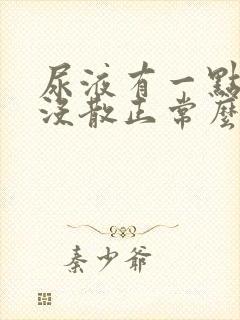 尿液有一點
沒散正常麼
秦少爺